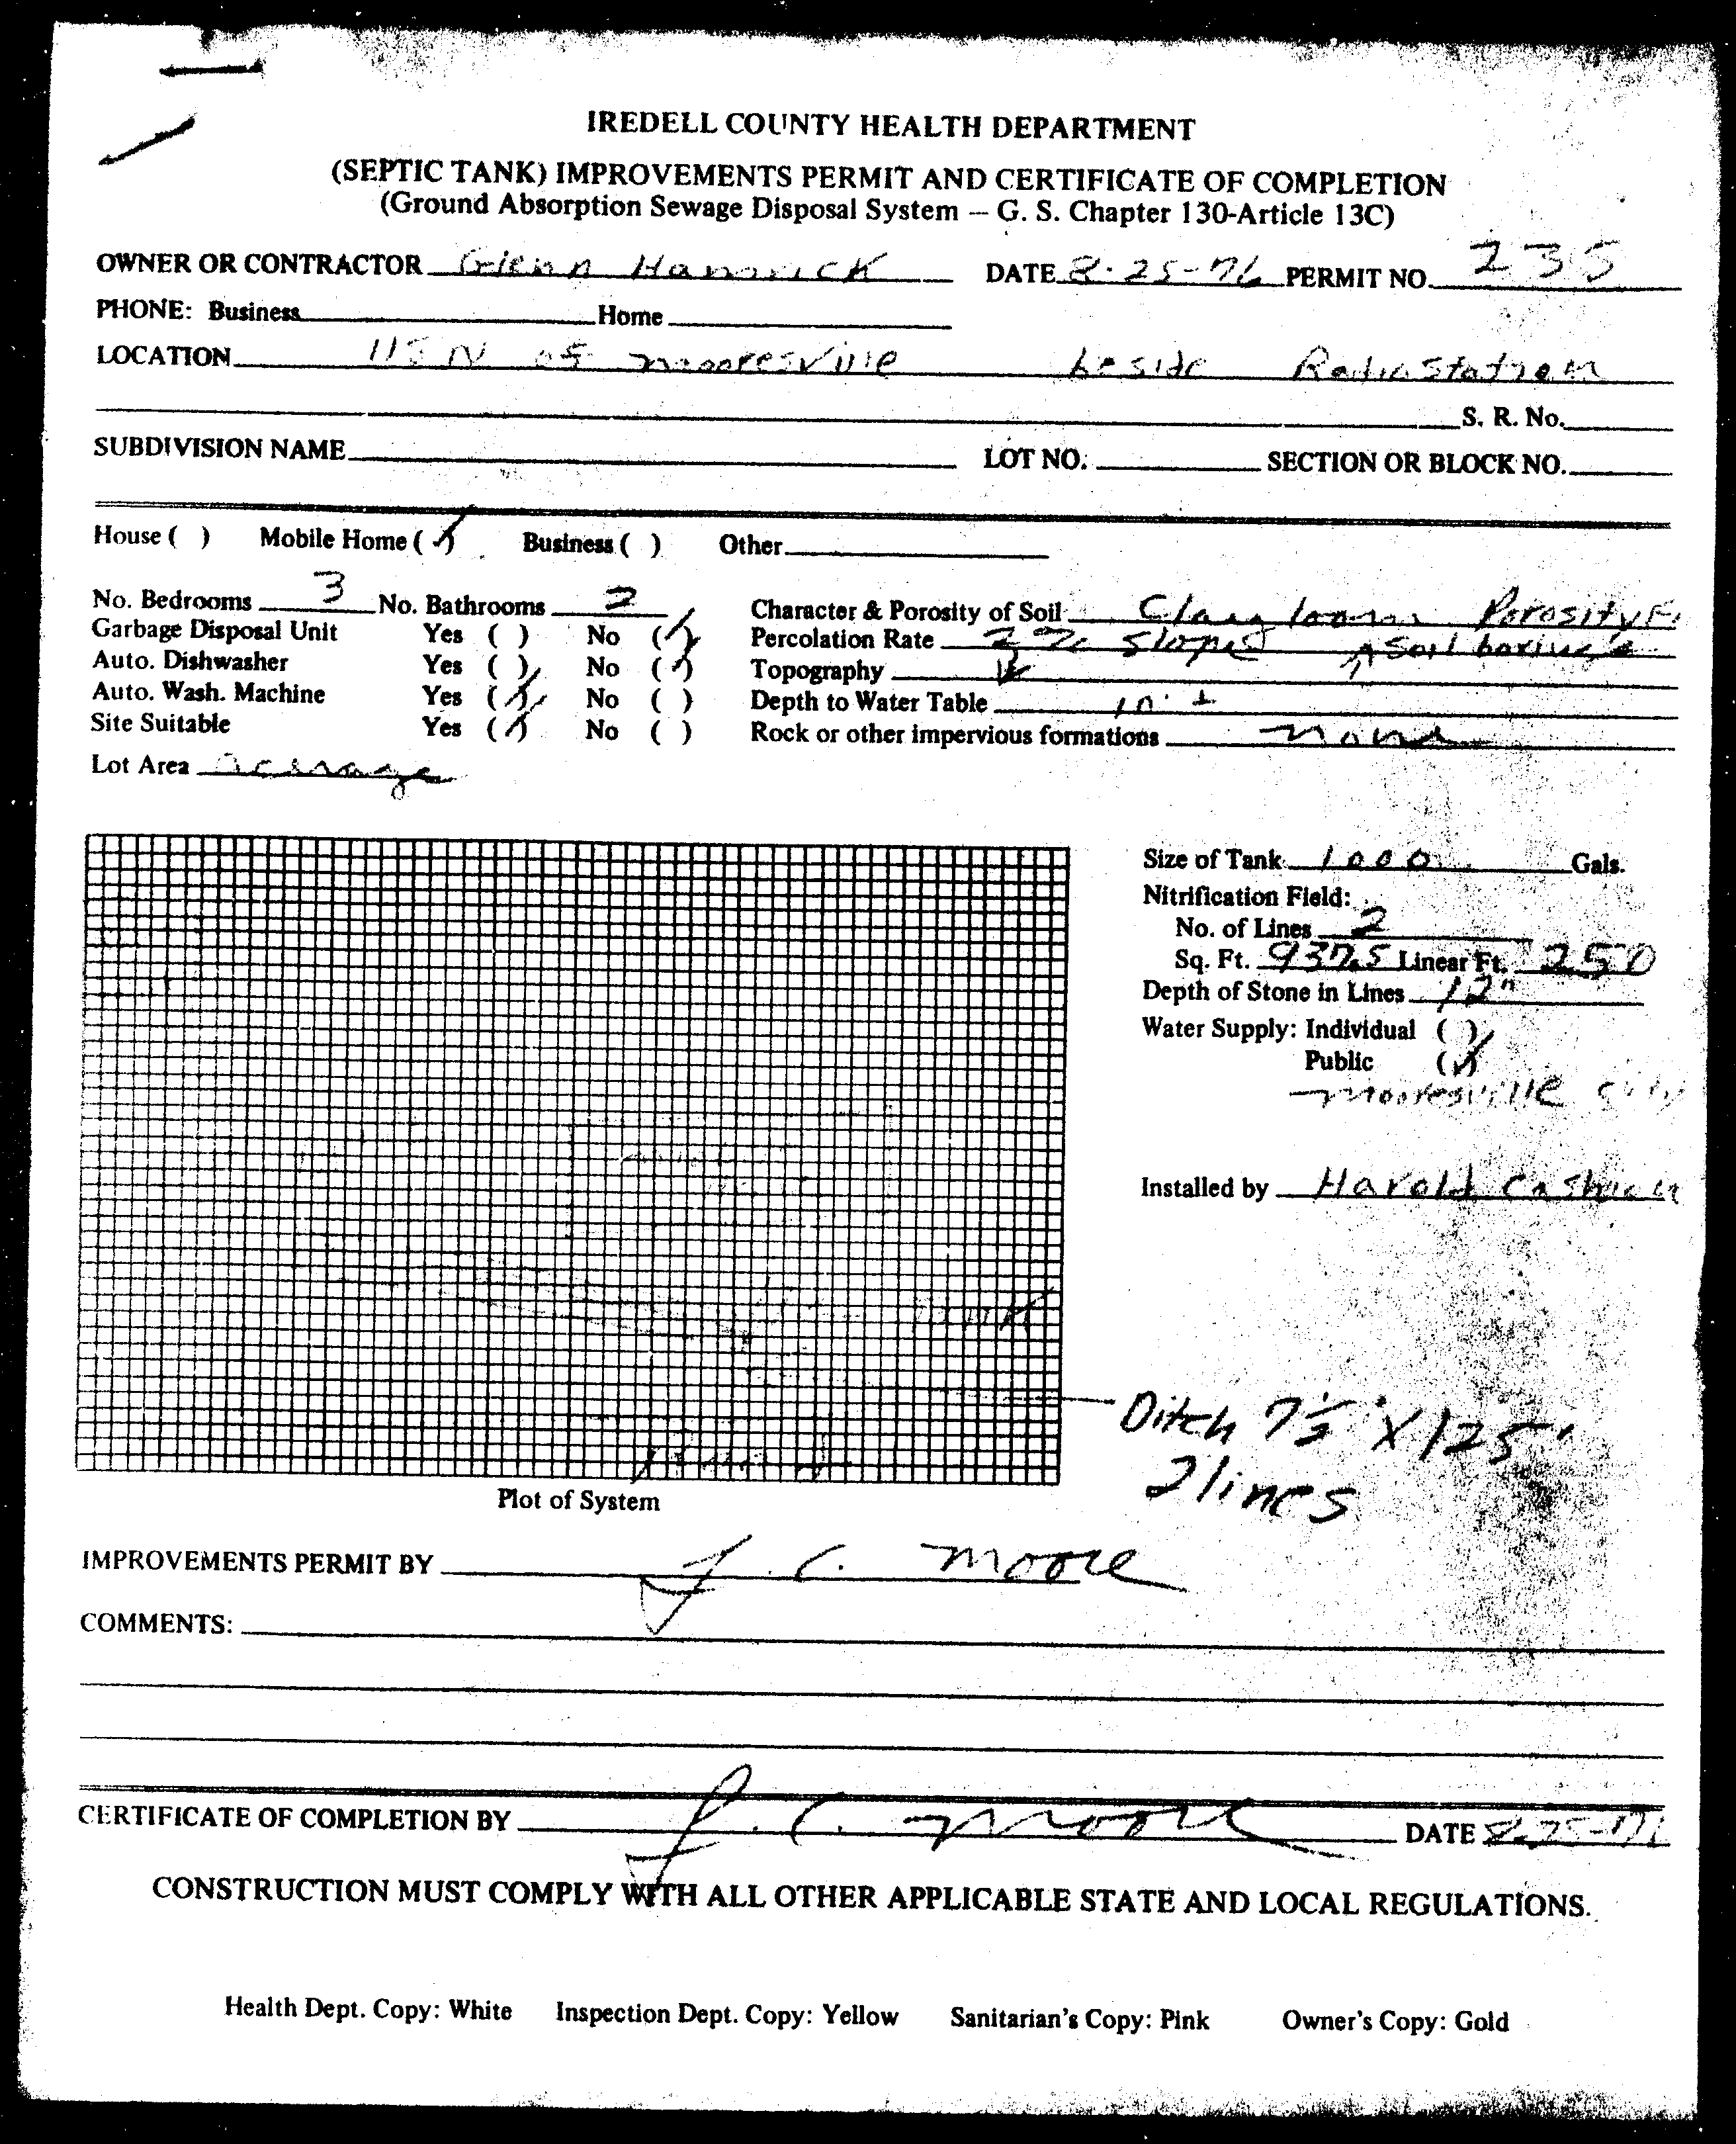 IREDELL COUNTY HEALTH DEPARTMENT
(SEPTIC TANK) IMPROVEMENTS PERMIT AND CERTIFICATE OF COMPLETION
(Ground Absorption Sewage Disposal System – G. S. Chapter 130-Article 13C)
OWNER OR CONTRACTOR Glenn Hamrick DATE 8-25-76 PERMIT NO. 235
PHONE: Business Home
LOCATION 115 N of Mooresville beside Radio Station
S. R. No.
SUBDIVISION NAME LOT NO. SECTION OR BLOCK NO.
House ( ) Mobile Home (✓) Business ( ) Other
No. Bedrooms 3 No. Bathrooms 2 Character & Porosity of Soil Clay loam Porosity
Garbage Disposal Unit Yes ( ) No (✓) Percolation Rate 2% Slope Soil
Auto. Dishwasher Yes ( ) No (✓) Topography
Auto. Wash. Machine Yes (✓) No ( ) Depth to Water Table 10' ±
Site Suitable Yes (✓) No ( ) Rock or other impervious formations None
Lot Area acerage
Size of Tank 1000 Gals.
Nitrification Field:
No. of Lines 2
Sq. Ft. 937.5 Linear Ft. 250
Depth of Stone in Lines 12"
Water Supply: Individual ( )
Public (✓)
Mooresville city
Installed by Harold Cashion
Ditch 7½' X 125'
2 lines
Plot of System
IMPROVEMENTS PERMIT BY J. C. Moore
COMMENTS:
CERTIFICATE OF COMPLETION BY J. C. Moore DATE 8-25-76
CONSTRUCTION MUST COMPLY WITH ALL OTHER APPLICABLE STATE AND LOCAL REGULATIONS.
Health Dept. Copy: White Inspection Dept. Copy: Yellow Sanitarian's Copy: Pink Owner's Copy: Gold